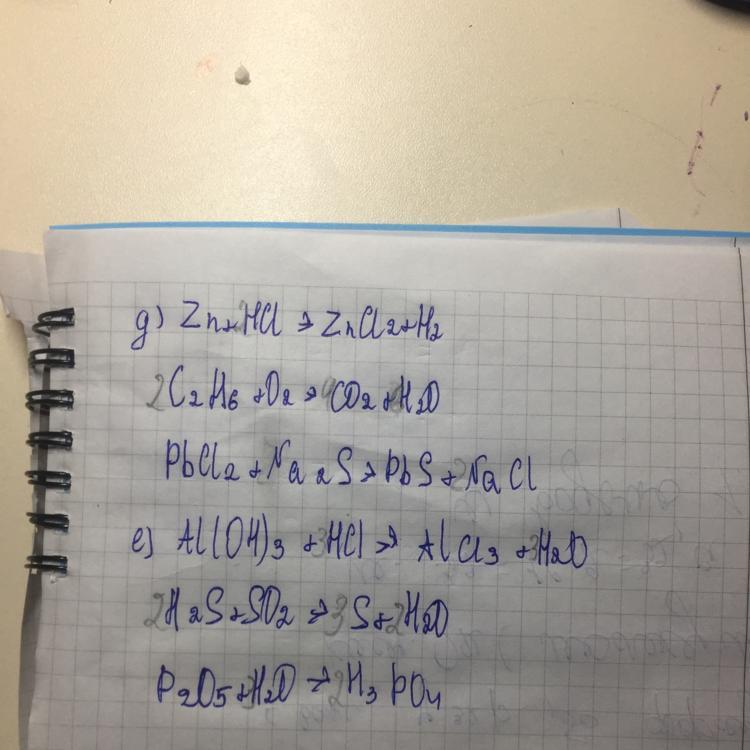 д) Zn + 2HCl → ZnCl2 + H2
2C2H6 + O2 → 4CO2 + 6H2O
PbCl2 + Na2S → PbS + 2NaCl
е) Al(OH)3 + 3HCl → AlCl3 + 3H2O
2H2S + SO2 → 3S + 2H2O
P2O5 + 3H2O → 2H3PO4